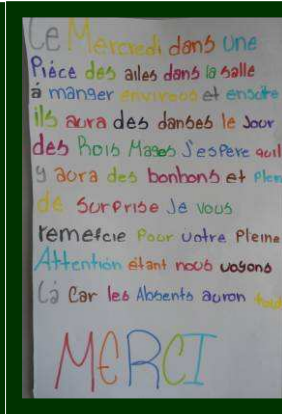 Ce Mercredi dans une
Pièce des ailes dans la salle
à manger environs et ensuite
ils aura des danses le Jour
des Rois Mages J'espère quil
y aura des bonbons et Plein
de Surprise Je vous
remercie Pour votre Pleine
Attention étant nous voyons
Là Car les Absents auron tout
MERCI